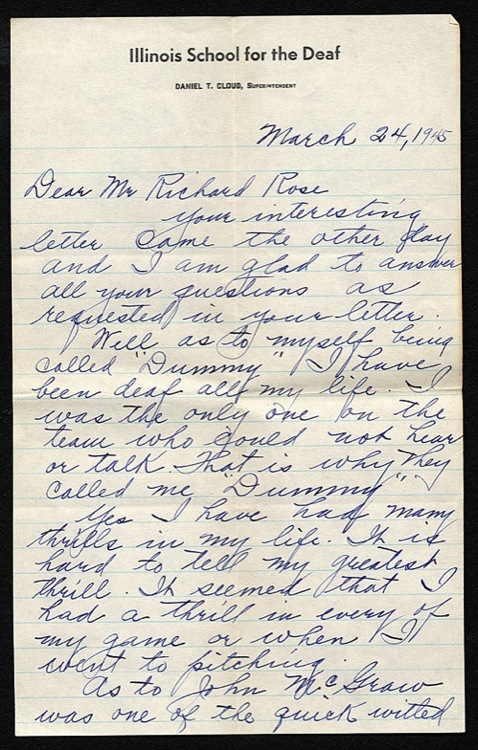 Illinois School for the Deaf
DANIEL T. CLOUD, SUPERINTENDENT
March 24, 1945
Dear Mr Richard Rose
your interesting
letter came the other day
and I am glad to answer
all your questions as
requested in your letter.
Well as to myself being
called "Dummy" I have
been deaf all my life. I
was the only one on the
team who could not hear
or talk. That is why they
called me "Dummy".
Yes I have had many
thrills in my life. It is
hard to tell my greatest
thrill. It seemed that I
had a thrill in every of
my game or when I
went to pitching.
As to John McGraw
was one of the quick witted